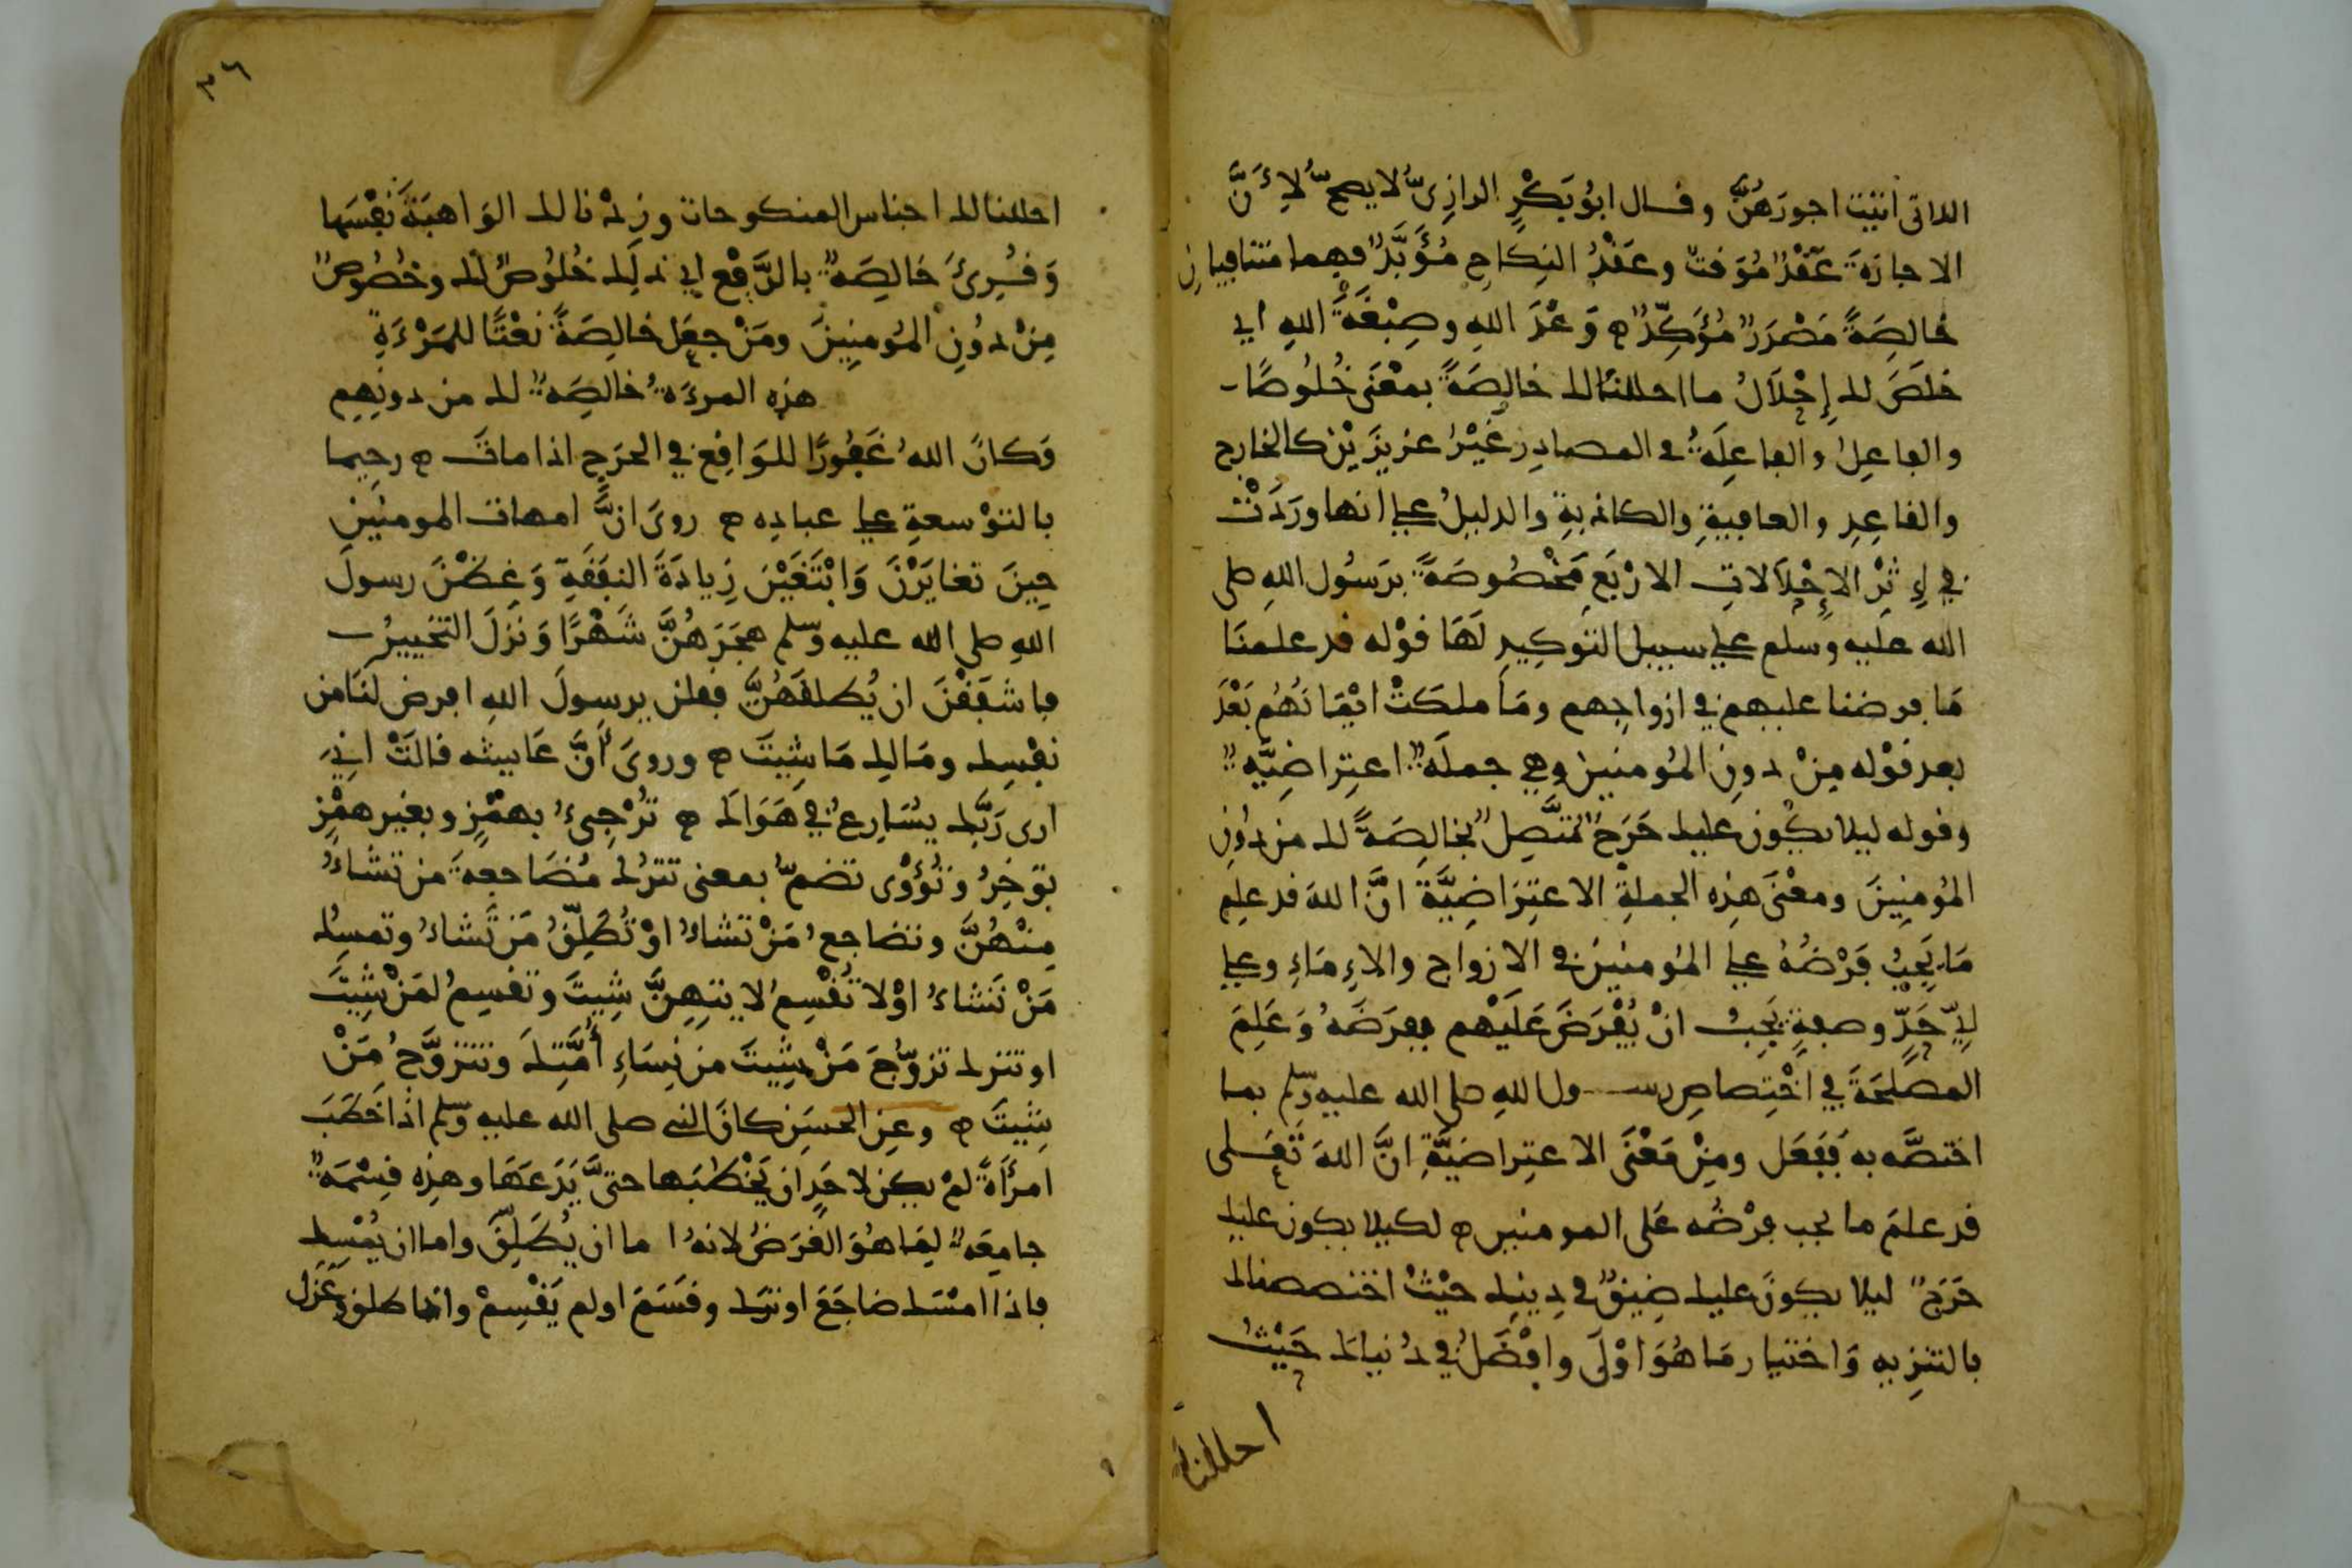 اللاتى اتيت اجورَهُنَّ وقال ابُو بَكْرٍ الرازِىُّ لا يصحُّ لِأَنَّ
الاجازةَ عَقْدٌ مُوَقتٌ وعَقْدُ النِكاحِ مُؤَبَّدٌ فهما متنافيانِ
خَالِصَةً مَصْدَرٌ مُؤَكِّدٌ ه وَعْدَ اللهِ وصِبْغَةَ اللهِ اي
خلَصَ لك إِحْلَالُ ما احللنَا لك خالِصَةً بمعْنَى خُلُوصًا
والفاعِلُ والفاعِلَةُ في المصادِر غَيْرُ عزيزَيْن كالخارج
والقاعِدِ والعافِيةِ والكاذبةِ والدليلُ على انها ورَدَتْ
في إِثْرِ الإِحْلَالاتِ الارْبَعِ مَخْصُوصَةً برَسُول اللهِ صلى
الله عليه وسلم على سبيل التوكِيدِ لَهَا قوْله قد علمنَا
مَا فرضنا عليهم في ازواجِهم ومَا ملكَتْ ايْمَانُهُم بَعْدَ
بعد قوْله مِنْ دونِ المُومنين وهي جملَةٌ اعتِراضِيَّةٌ
وقوله ليلا يكُون عليك حَرَجٌ مُتَّصِلٌ بخالِصَةً لك من دُونِ
المُومِنِينَ ومعْنَى هذِه الجملةِ الاعتِرَاضِيَّةِ انَّ اللهَ قد علِم
مَا يَجِبُ فَرْضُهُ على المُومنين في الازواج والإِمَاءِ وعلى
أيِّ حَدٍّ وصفةٍ يَجِبُ انْ يُفْرَضَ عَلَيْهِم ففرَضَهُ وَعَلِمَ
المصلحَةَ في اخْتِصاصِ رسول اللهِ صلى الله عليه وسلم بما
اختصَّه به فَفَعَل ومِنْ مَعْنَى الاعتِراضيَّةِ انَّ اللهَ تَعَلى
قد علمَ ما يجب فرْضُه عَلى المومنين ه لكيلا يكون عليك
حَرَجٌ ليلا يكونَ عليك ضِيقٌ في دِينِك حَيْثُ اختصصناك
بالتنزِيهِ وَاختيارِ مَا هُوَ اوْلَى وافْضَلُ في دُنياكَ حَيْثُ
احللنا
٣٦
احللنا لك اجناس المنكوحات وزِدْنا لك الوَاهِبَةَ نَفْسَها
وَقُرِئَ خَالِصَةٌ بالرَّفْع اي ذلِك خُلُوصٌ لك وخُصُوصٌ
مِنْ دُونِ المُومنِينَ ومَنْ جعَل خالِصَةً نَعْتًا للمَرْءَةِ
هذِه المرءَةُ خالِصَةٌ لك من دونِهِم
وَكانَ اللهُ غَفُورًا للوَاقِع في الحرَج اذا مات ه رحِيما
بالتوْسعةِ على عبادِه ه روىَ انَّ امهات المومنين
حِينَ تغايَرْنَ وَابْتَغَيْنَ زِيادَةَ النفَقَةِ وَغِظْنَ رسولَ
اللهِ صلى الله عليه وسلم هجَرَهُنَّ شَهْرًا وَنَزَلَ التخييرُ
فاشفَقْنَ ان يُطلقَهُنَّ فقلن يرسولَ اللهِ افرض لنَا من
نفْسِك ومَالِك مَا شِيتَ ه وروىَ أنَّ عَايشه قالَتْ اني
ارى رَبَّك يُسَارِعُ في هَوَاكَ ه تُرْجِئُ بهمْزٍ وبغير همْزٍ
توَخِرُ وَتُؤْوِى تضمُّ بمعنى تتركُ مُضَاجعةَ من تشاءُ
مِنْهُنَّ وتضاجعُ مَنْ تشاءُ اوْ تُطَلِّقُ مَن تَشاءُ وتمسِكُ
مَنْ تَشاءُ اوْ لا تَقْسِمُ لايتِهِنَّ شِيتَ وتقسِمُ لمَنْ شِيتَ
او تترك تزوُّجَ مَنْ شِيتَ من نِسَاءِ أُمَّتِكَ وتتزوَّجُ مَنْ
شِيتَ ه وعنِ الحسَنِ كانَ النبي صلى الله عليه وسلم اذا خَطَبَ
امرأَةً لمْ يكن لاحَدٍ ان يَخْطُبَها حتىَّ يَدَعَهَا وهذِه قِسْمَةٌ
جامِعَةٌ لِمَا هُوَ الغرَضُ لانهُ اما ان يُطَلِّقَ واما ان يُمْسِك
فاذا امْسَك ضاجَعَ او ترَك وقسَمَ او لم يَقْسِمْ واذا طلق وعَزَل